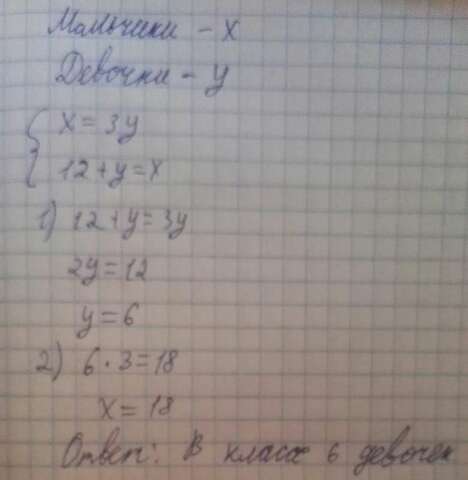 Мальчики - x
Девочки - y
x = 3y
12 + y = x
1) 12 + y = 3y
2y = 12
y = 6
2) 6 · 3 = 18
x = 18
Ответ: В классе 6 девочек